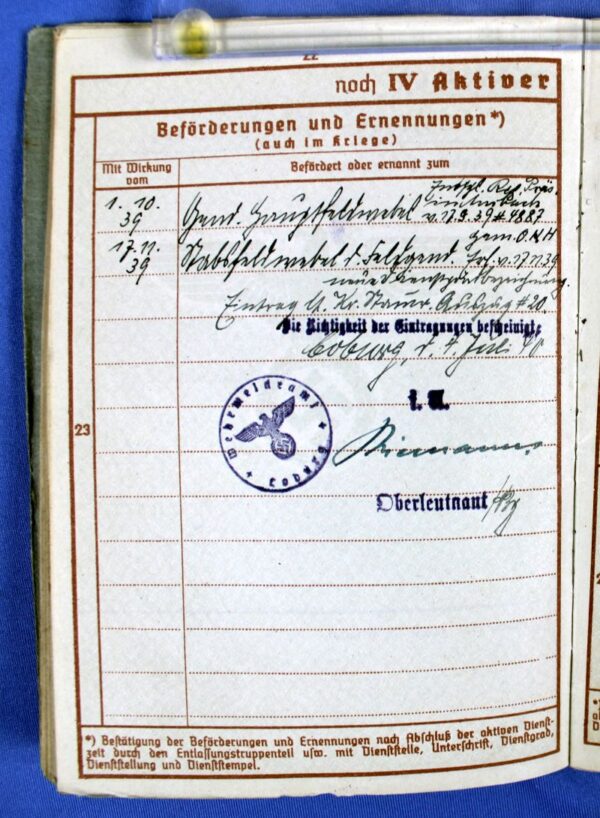 22
noch IV Aktiver
Beförderungen und Ernennungen*)
(auch im Kriege)
Mit Wirkung
vom
Befördert oder ernannt zum
1. 10.
39
Gend. Hauptfeldwebel
v. 17.9.39 # 4887
17.11.
39
gem. O.K.H
Stabsfeldwebel d. Feldgend.
v. 17.11.39
neue Dienstgradbezeichnung.
Eintrag
# 20.
Die Richtigkeit der Eintragungen bescheinigt:
Coburg, d. 4. Juli 40
I. A.
Wehrmeldeamt
Coburg
23
Oberleutnant
*) Bestätigung der Beförderungen und Ernennungen nach Abschluß der aktiven Dienst-
zeit durch den Entlassungstruppenteil usw. mit Dienststelle, Unterschrift, Dienstgrad,
Dienststellung und Dienststempel.